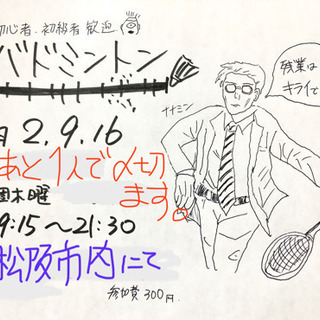 初心者・初級者歓迎
バドミントン
月 2,9,16
あと1人で〆切
ます。
週木曜
19:15〜21:30
松阪市内にて
参加費 300円.
ナナミン
残業は
キライで